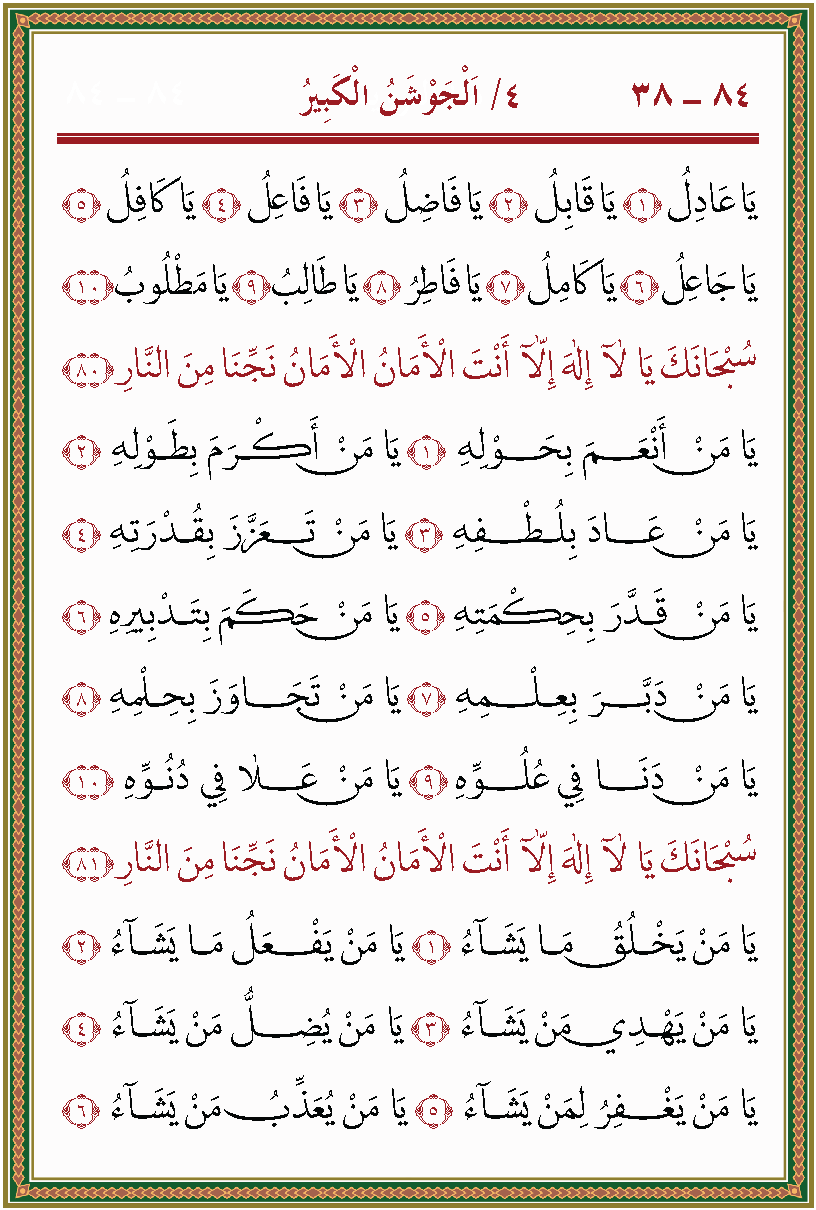 ٨٤ – ٣٨ ٤/ اَلْجَوْشَنُ الْكَبِيرُ ٨٤ – ٨٤
يَا عَادِلُ ﴿١﴾ يَا قَابِلُ ﴿٢﴾ يَا فَاضِلُ ﴿٣﴾ يَا فَاعِلُ ﴿٤﴾ يَا كَافِلُ ﴿٥﴾
يَا جَاعِلُ ﴿٦﴾ يَا كَامِلُ ﴿٧﴾ يَا فَاطِرُ ﴿٨﴾ يَا طَالِبُ ﴿٩﴾ يَا مَطْلُوبُ ﴿١٠﴾
سُبْحَانَكَ يَا لَآ إِلٰهَ إِلَّآ أَنْتَ الْأَمَانُ الْأَمَانُ نَجِّنَا مِنَ النَّارِ ﴿٨٠﴾
يَا مَنْ أَنْعَمَ بِحَوْلِهِ ﴿١﴾ يَا مَنْ أَكْرَمَ بِطَوْلِهِ ﴿٢﴾
يَا مَنْ عَادَ بِلُطْفِهِ ﴿٣﴾ يَا مَنْ تَعَزَّزَ بِقُدْرَتِهِ ﴿٤﴾
يَا مَنْ قَدَّرَ بِحِكْمَتِهِ ﴿٥﴾ يَا مَنْ حَكَمَ بِتَدْبِيرِهِ ﴿٦﴾
يَا مَنْ دَبَّرَ بِعِلْمِهِ ﴿٧﴾ يَا مَنْ تَجَاوَزَ بِحِلْمِهِ ﴿٨﴾
يَا مَنْ دَنَا فِي عُلُوِّهِ ﴿٩﴾ يَا مَنْ عَلَا فِي دُنُوِّهِ ﴿١٠﴾
سُبْحَانَكَ يَا لَآ إِلٰهَ إِلَّآ أَنْتَ الْأَمَانُ الْأَمَانُ نَجِّنَا مِنَ النَّارِ ﴿٨١﴾
يَا مَنْ يَخْلُقُ مَا يَشَآءُ ﴿١﴾ يَا مَنْ يَفْعَلُ مَا يَشَآءُ ﴿٢﴾
يَا مَنْ يَهْدِي مَنْ يَشَآءُ ﴿٣﴾ يَا مَنْ يُضِلُّ مَنْ يَشَآءُ ﴿٤﴾
يَا مَنْ يَغْفِرُ لِمَنْ يَشَآءُ ﴿٥﴾ يَا مَنْ يُعَذِّبُ مَنْ يَشَآءُ ﴿٦﴾